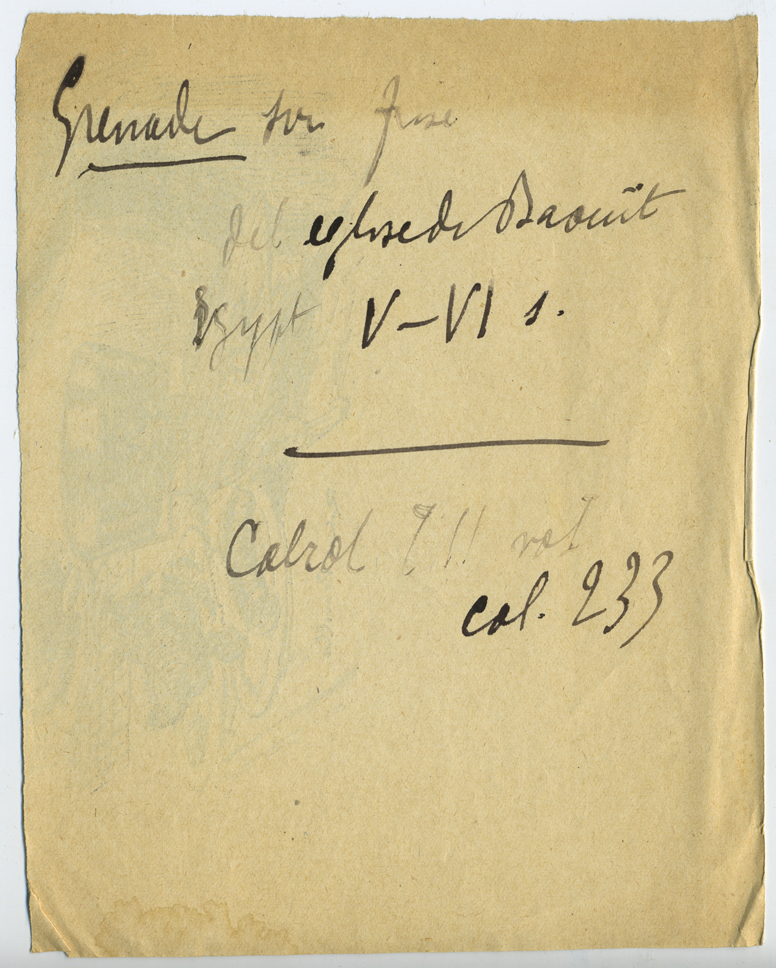 Grenade sur frise
del eglise de Baouît
Egypt V–VI s.
Cabrol T II vol
col. 233